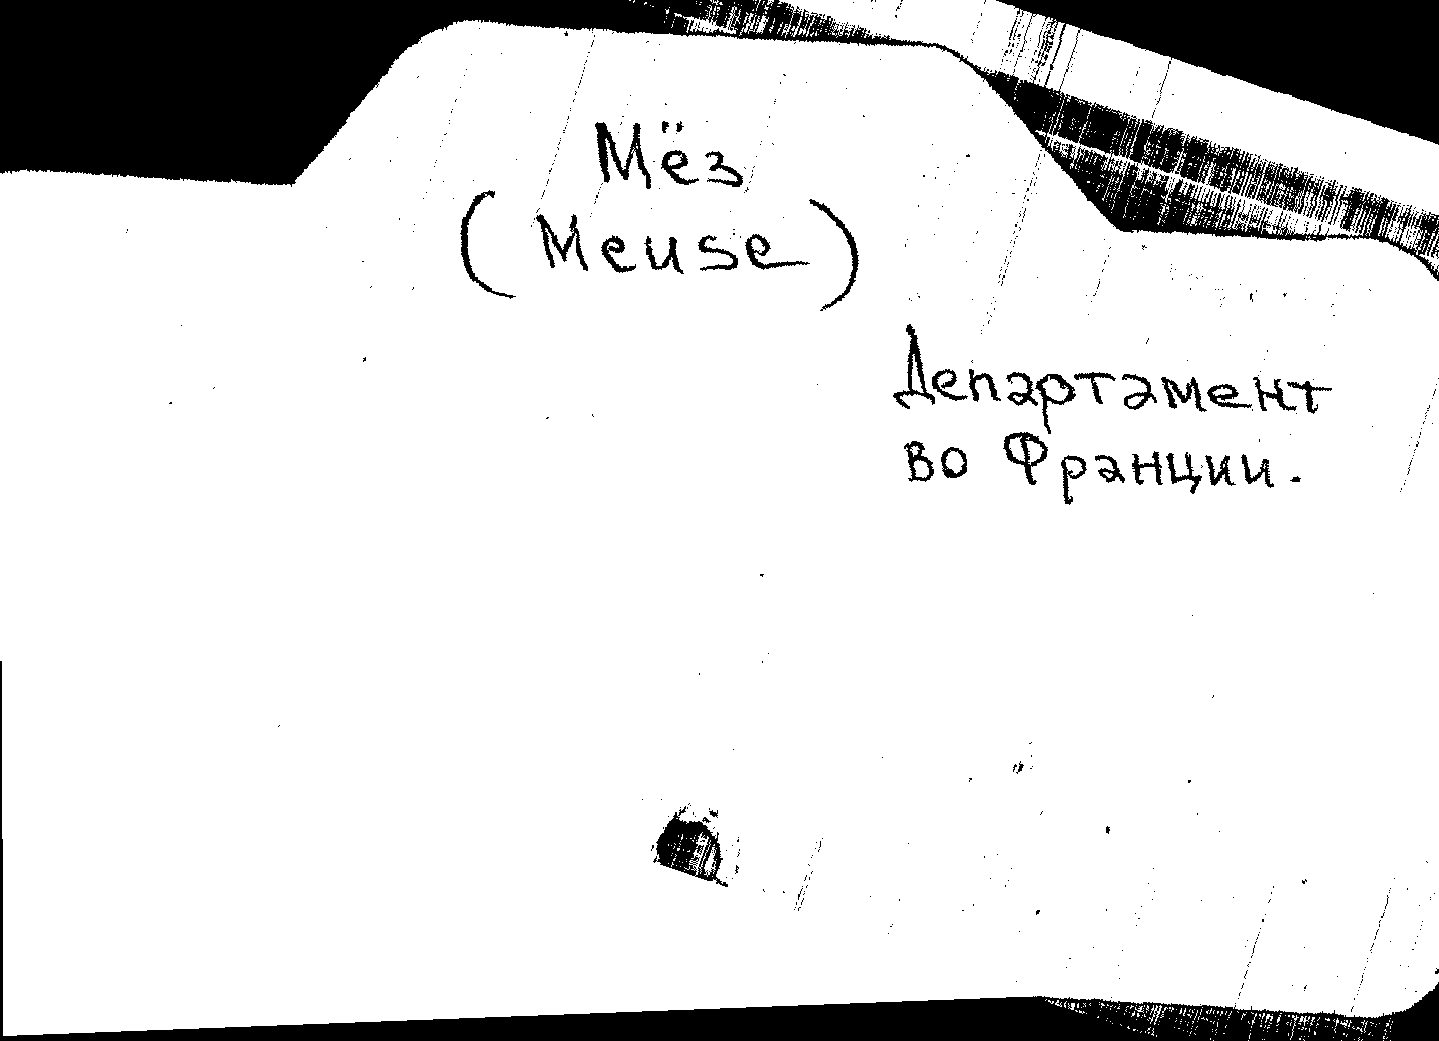 Мёз
(Meuse)
Департамент
во Франции.